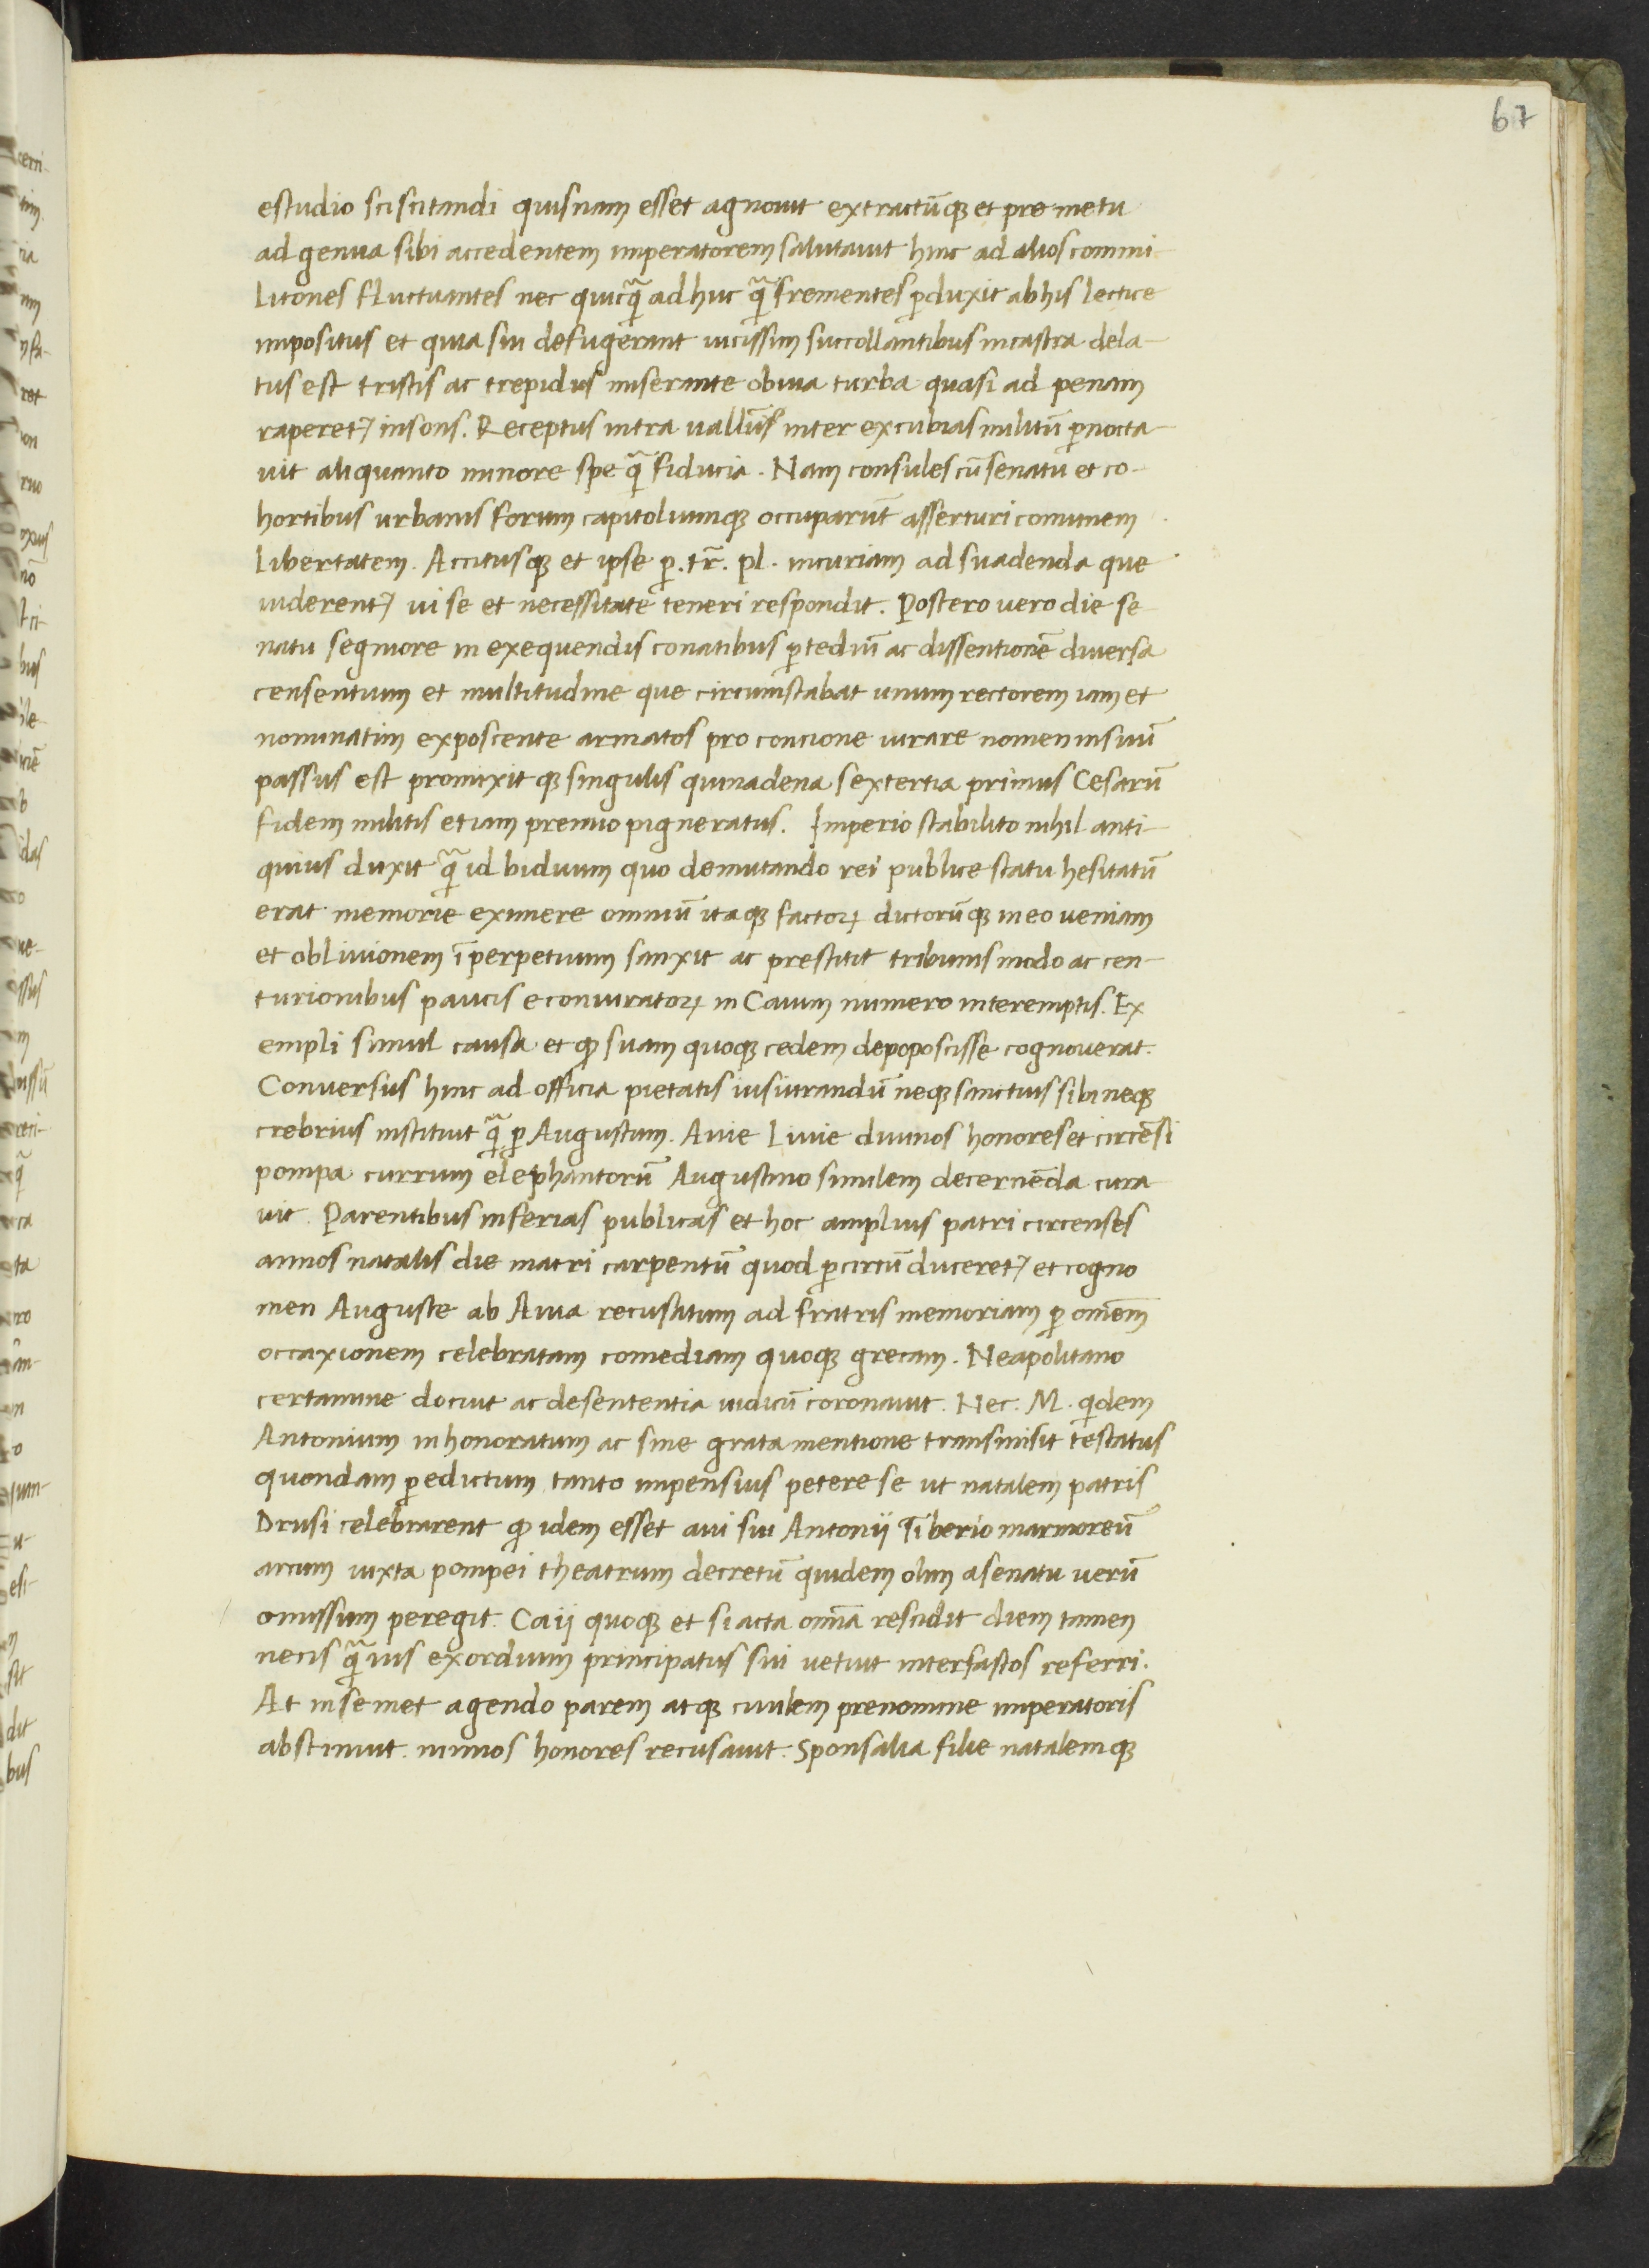 67
estudio sciscitandi quisnam esset agnouit extractūq; et pre metu
ad genua sibi accedentem imperatorem salutauit hinc ad alios commi
litones fluctuantes nec quicq̃ adhuc q̃ frementes ꝑduxit ab his lectice
impositus et quia sui defugerant uicissim succollantibus in castra dela-
tus est tristis ac trepidus miserante obuia turba quasi ad penam
raperet᷑ insons. Receptus intra uallūs inter excubias militū ꝑnocta-
uit aliquanto minore spe q̃ fiducia. Nam consules cū senatu et co-
hortibus urbanis forum capitoliumq; occuparūt asserturi comunem
libertatem. Accitusq; et ipse ꝑ. tr̄. pl. in curiam ad suadenda que
uiderent᷑ ui se et necessitate teneri respondit. Postero uero die se
natu segniore in exequendis conatibus ꝑ tediū ac dissentionē diuersa
censentium et multitudine que circumstabat unum rectorem iam et
nominatim exposcente armatos pro concione iurare nomen in suū
passus est promixitq; singulis quinadena sextertia primus Cesarū
fidem militis etiam premio pigneratus. Imperio stabilito nihil anti-
quius duxit q̃ id biduum quo de mutando rei publice statu hesitatū
erat memorie eximere omniū itaq; factoꝝ dictorūq; in eo ueniam
et obliuionem ī perpetuum sanxit ac prestitit tribunis modo ac cen-
turionibus paucis e coniuratoꝝ in Caium numero interemptis. Ex
empli simul causa et ꝙ suam quoq; cedem depoposcisse cognouerat.
Conuersus hinc ad officia pietatis iusiurandū neq; sanctius sibi neq;
crebrius instituit q̃ ꝑ Augustum. Auie Liuie diuinos honores et circēsi
pompa currum elephantorū Augustino similem decernēda cura
uit. Parentibus inferias publicas et hoc amplius patri circenses
annos natalis die matri carpentū quod ꝑ circū duceret᷑ et cogno
men Auguste ab Auia recusatum ad fratris memoriam ꝑ omēm
occaxionem celebratam comediam quoq; grecam. Neapolitano
certamine docuit ac de sententia iudicū coronauit. Nec. M. qidem
Antonium inhonoratum ac sine grata mentione transmisit testatus
quondam ꝑ edictum tanto impensius petere se ut natalem patris
Drusi celebrarent ꝙ idem esset aui sui Antonij Tiberio marmoreū
arcum iuxta pompei theatrum decretū quidem olim a senatu uerū
omissum peregit. Caij quoq; et si acta oīma rescidit diem tamen
necis q̃uis exordium principatus sui uetuit inter fastos referri.
At in semet agendo parem atq; ciuilem prenomine imperatoris
abstinuit. nimios honores recusauit. Sponsalia filie natalemq;